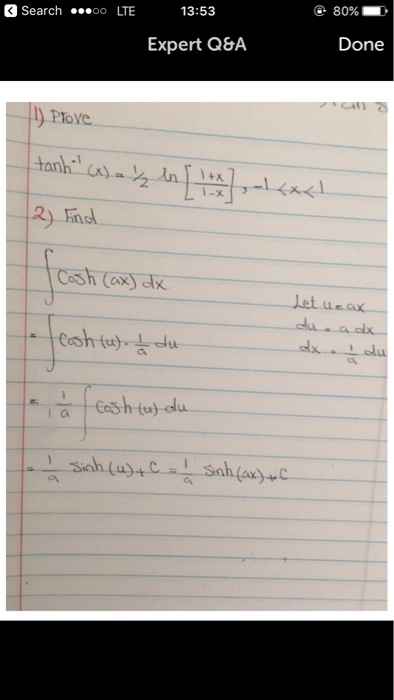 Search ●●●○○ LTE 13:53 80%
Expert Q&A Done
1) Prove
tanh⁻¹(x) = 1/2 ln [1+x / 1-x], -1<x<1
2) Find
∫ Cosh (ax) dx
Let u = ax
du = a dx
dx = 1/a du
= ∫ Cosh (u) · 1/a du
= 1/a ∫ Cosh (u) du
= 1/a Sinh (u) + C = 1/a Sinh (ax) + C